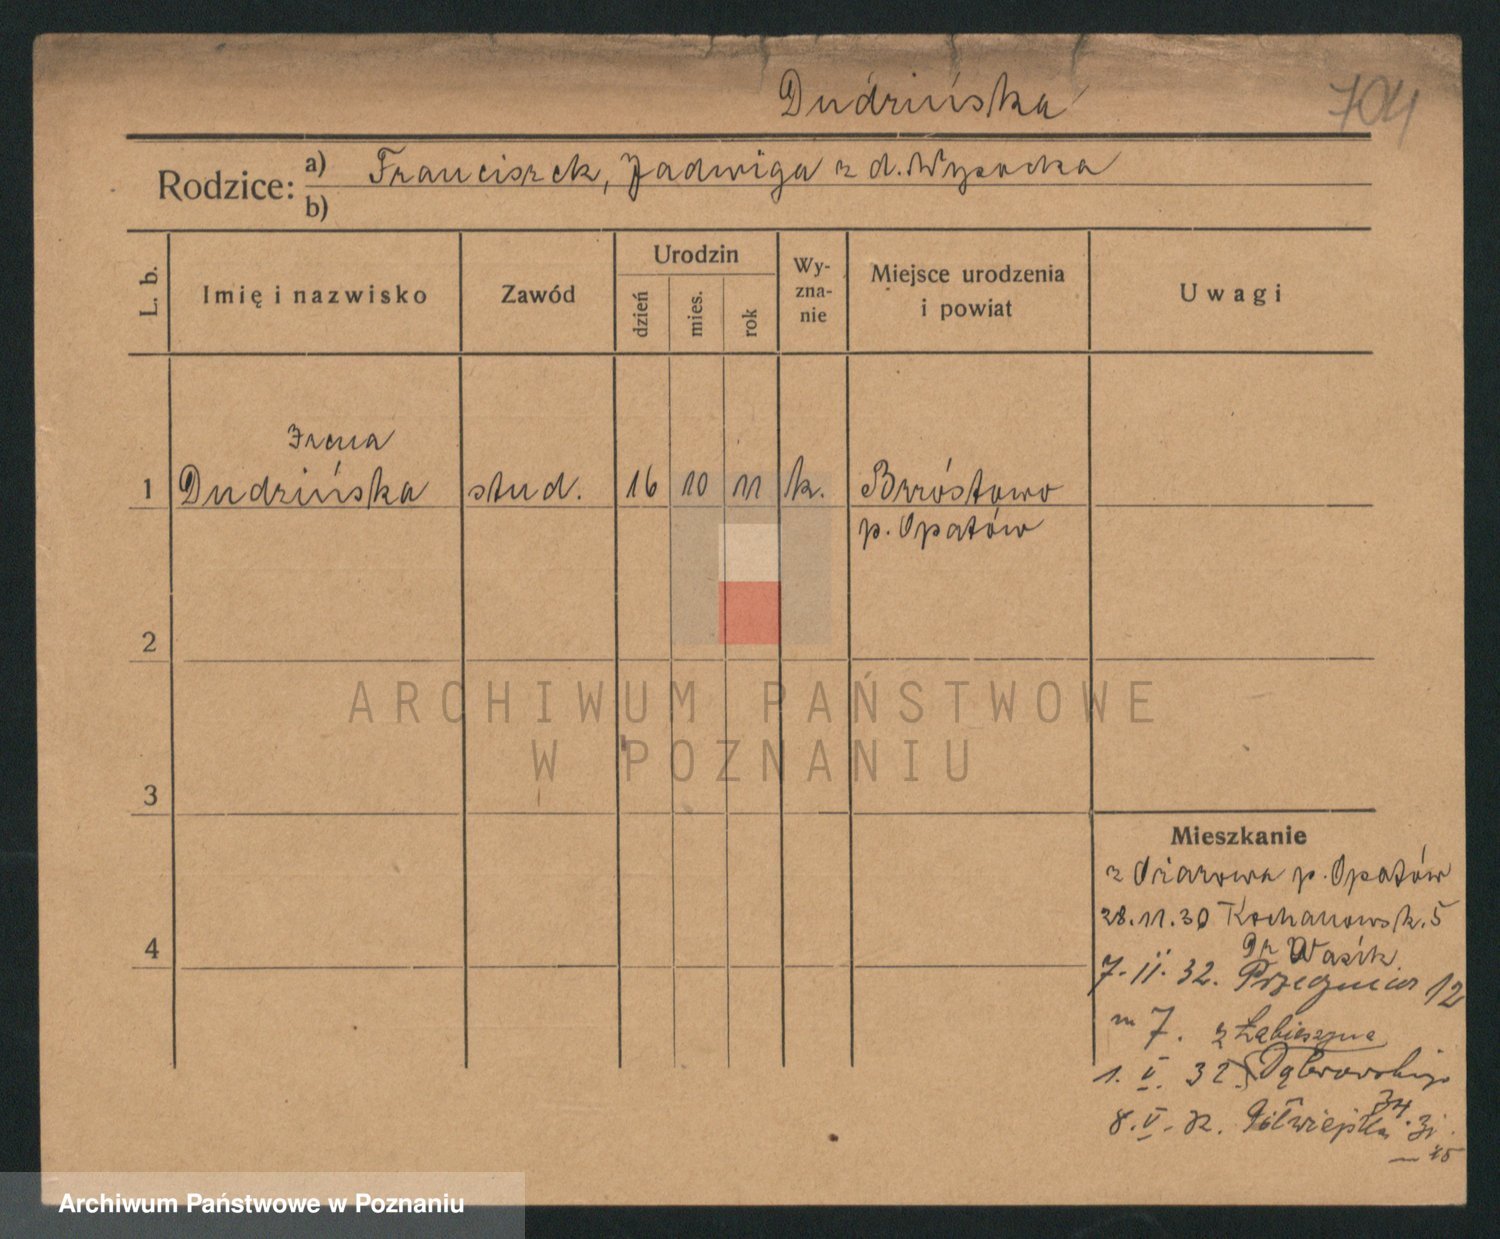 Dudzińska
704
Rodzice: a) Franciszek, Jadwiga z d. Wysocka
b)
L. b.
Imię i nazwisko
Zawód
Urodzin
dzień
mies.
rok
Wy-
zna-
nie
Miejsce urodzenia
i powiat
Uwagi
Irena
1 Dudzińska stud. 16 10 11 k. Brzóstowo
p. Opatów
2
ARCHIWUM PAŃSTWOWE
W POZNANIU
3
Mieszkanie
z Ożarowa p. Opatów
28.11.30 Kochanowsk. 5
4
Wasik
7. II. 32. 12
m 7. z Łabiszyna
1. V. 32. Dąbrowskiego
34.
8. V. 32. Półwiejska 31.
Archiwum Państwowe w Poznaniu